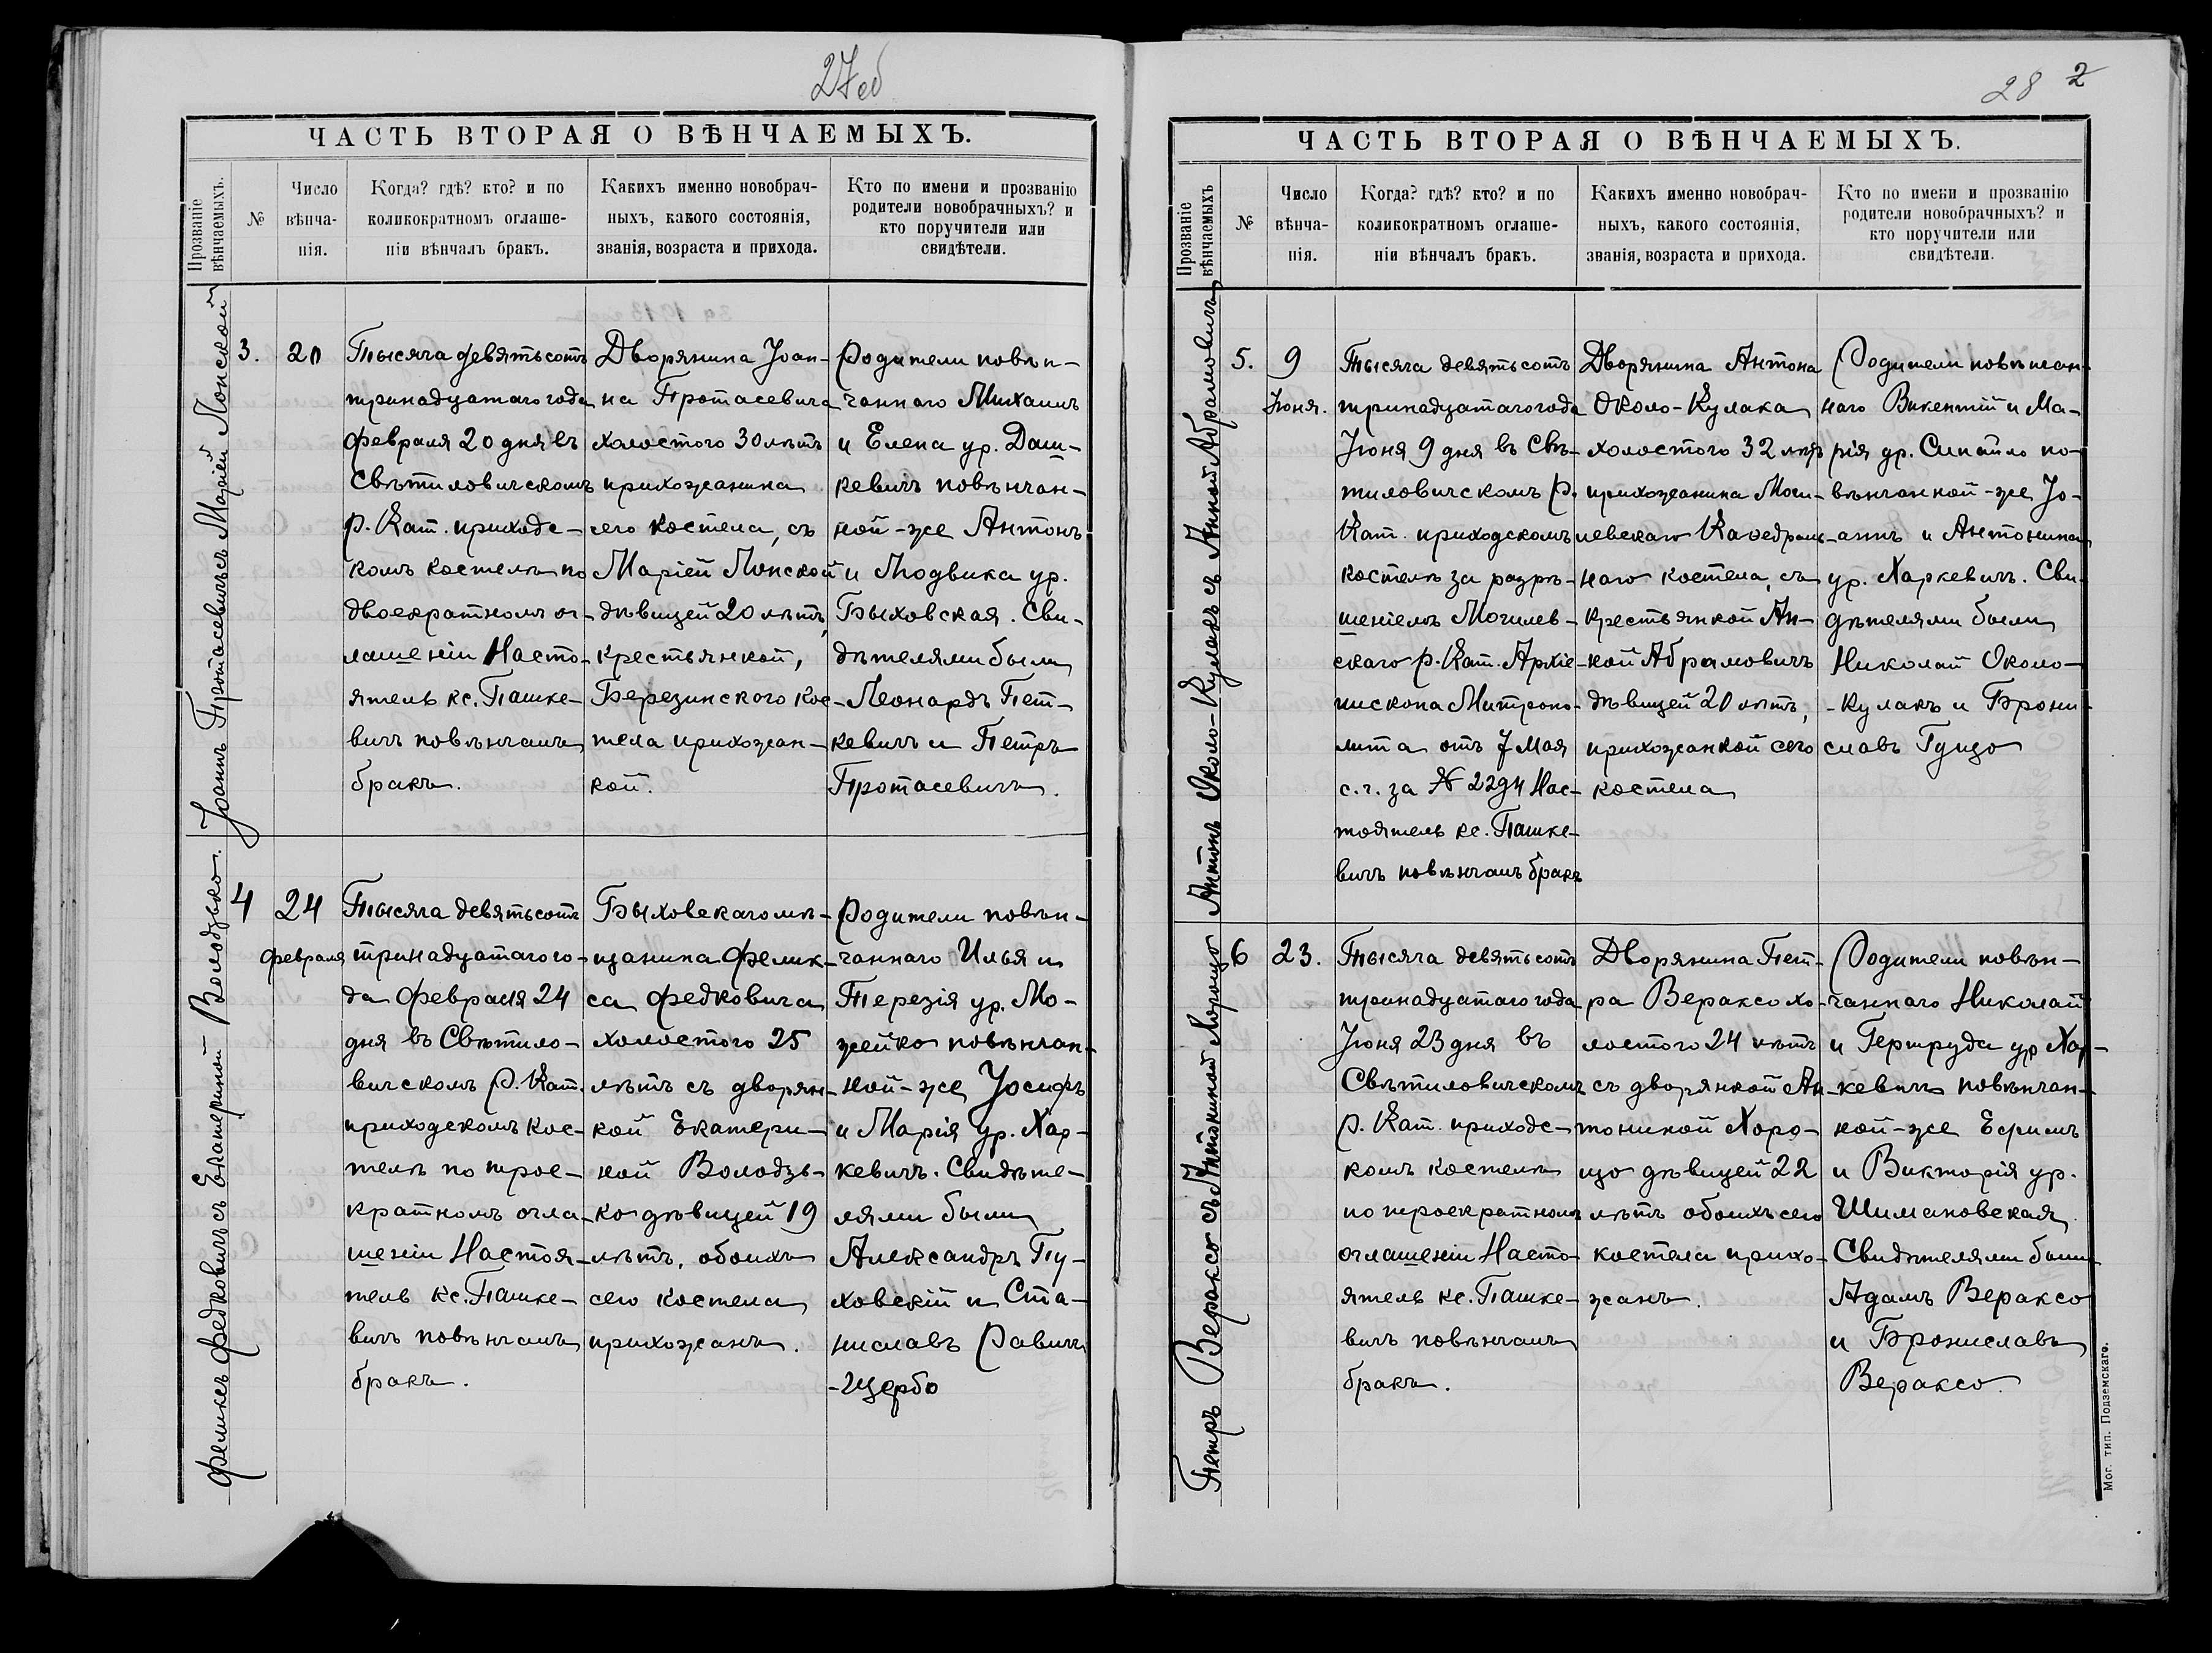 27 об
ЧАСТЬ ВТОРАЯ О ВѢНЧАЕМЫХЪ.
Прозваніе
вѣнчаемыхъ.
№
Число
вѣнча-
нія.
Когда? гдѣ? кто? и по
коликократномъ оглаше-
ніи вѣнчалъ бракъ.
Какихъ именно новобрач-
ныхъ, какого состоянія,
званія, возраста и прихода.
Кто по имени и прозванію
родители новобрачныхъ? и
кто поручители или
свидѣтели.
Іоаннъ Протасевичъ съ Маріей Лонской
3.
20
Тысяча девятьсотъ
тринадцатаго года
февраля 20 дня въ
Свѣтиловичскомъ
р. Кат. приходс-
комъ костелѣ по
двоекратномъ ог-
лашеніи Насто-
ятель кс. Пашке-
вичъ повѣнчалъ
бракъ.
Дворянина Іоан-
на Протасевича
холостого 30 лѣтъ
прихожанина
сего костела, съ
Маріей Лонской
дѣвицей 20 лѣтъ,
крестьянкой,
Березинского кос-
тела прихожан-
кой.
Родители повѣн-
чаннаго Михаилъ
и Елена ур. Даш-
кевичъ повѣнчан-
ной-же Антонъ
и Людвика ур.
Быховская. Сви-
дѣтелями были
Леонардъ Пет-
кевичъ и Петръ
Протасевичъ.
Феликсъ Федковичъ съ Екатериной Володзько.
4
24
февраля
Тысяча девятьсотъ
тринадцатаго го-
да февраля 24
дня въ Свѣтило-
вичскомъ р. Кат.
приходскомъ кос-
телѣ по трое-
кратномъ огла-
шеніи Настоя-
тель кс. Пашке-
вичъ повѣнчалъ
бракъ.
Быховскаго мѣ-
щанина Феликс-
са Федковича
холостого 25
лѣтъ съ дворян-
кой Екатери-
ной Володзь-
ко дѣвицей 19
лѣтъ, обоихъ
сего костела
прихожанъ.
Родители повѣн-
чаннаго Илья и
Терезія ур. Мо-
жейко повѣнчан-
ной-же Іосифъ
и Марія ур. Хар-
кевичъ. Свидѣте-
лями были
Александръ Пу-
ховскій и Ста-
ниславъ Равичъ
-Щербо
28 2
ЧАСТЬ ВТОРАЯ О ВѢНЧАЕМЫХЪ.
Прозваніе
вѣнчаемыхъ
№
Число
вѣнча-
нія.
Когда? гдѣ? кто? и по
коликократномъ оглаше-
ніи вѣнчалъ бракъ.
Какихъ именно новобрач-
ныхъ, какого состоянія,
званія, возраста и прихода.
Кто по имени и прозванію
родители новобрачныхъ? и
кто поручители или
свидѣтели.
Антонъ Около-Кулакъ съ Анной Абрамовичъ
5.
9
Іюня.
Тысяча девятьсотъ
тринадцатаго года
Іюня 9 дня въ Свѣ-
тиловичскомъ р.
Кат. приходскомъ
костелѣ за разрѣ-
шеніемъ Могилев-
скаго р. Кат. Архіе-
пископа Митропо-
лита отъ 7 Мая
с. г. за № 2294 Нас-
тоятель кс. Пашке-
вичъ повѣнчалъ бракъ
Дворянина Антона
Около-Кулака
холостого 32 лѣтъ
прихожанина Моги-
левскаго Каѳедраль-
наго костела, съ
крестьянкой Ан-
ной Абрамовичъ
дѣвицей 20 лѣтъ,
прихожанкой сего
костела
Родители повѣнчан-
наго Викентій и Ма-
рія ур. по-
вѣнчанной-же Іо-
аннъ и Антонина
ур. Харкевичъ. Сви-
дѣтелями были
Николай Около-
-Кулакъ и Брони-
славъ Гунцо
Петръ Вераксо съ Антониной Хорощо
6
23.
Тысяча девятьсотъ
тринадцатаго года
Іюня 23 дня въ
Свѣтиловичскомъ
р. Кат. приходс-
комъ костелѣ
по троекратномъ
оглашеніи Насто-
ятель кс. Пашке-
вичъ повѣнчалъ
бракъ.
Дворянина Пет-
ра Вераксо хо-
лостого 24 лѣтъ
съ дворянкой Ан-
тониной Хоро-
що дѣвицей 22
лѣтъ обоихъ сего
костела прихо-
жанъ.
Родители повѣн-
чаннаго Николай
и Гертруда ур Хар-
кевичъ повѣнчан-
ной-же Ефимъ
и Викторія ур.
Шимановская.
Свидѣтелями были
Адамъ Вераксо
и Брониславъ
Вераксо.
Мог. тип. Подземскаго.